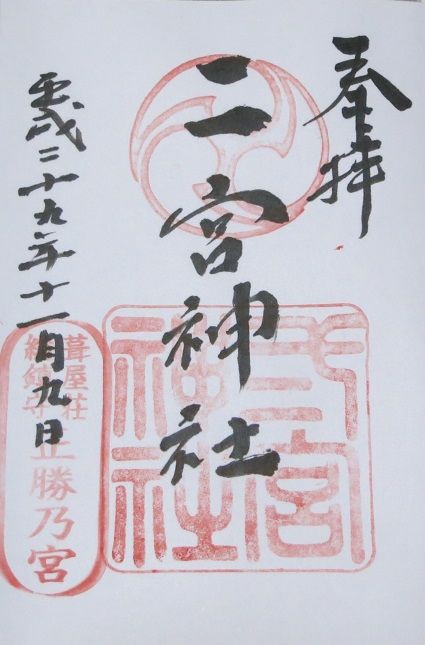 奉拝
二宮神社
弍宮神社
平成二十九年十一月九日
葺屋荘
正勝乃宮